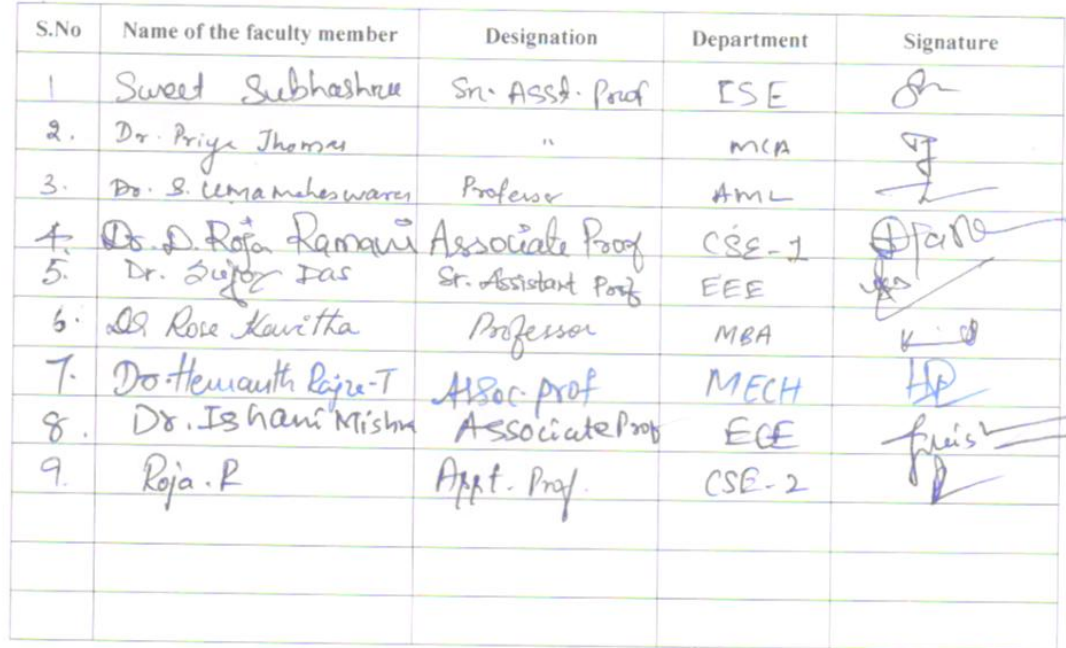 S.No Name of the faculty member Designation Department Signature
1 Sweet Subhashree Sn. Asst. Prof ISE
2. Dr. Priya Thomas " MCA
3. Dr. S. Umamaheswari Professor AML
4. Dr. D. Roja Ramani Associate Prof CSE-1
5. Dr. Sujoy Das Sr. Assistant Prof EEE
6. Dr Rose Kavitha Professor MBA
7. Dr. Hemanth Raju-T Assoc. Prof MECH
8. Dr. Ishani Mishra Associate Prof ECE
9. Roja. R Asst. Prof. CSE-2